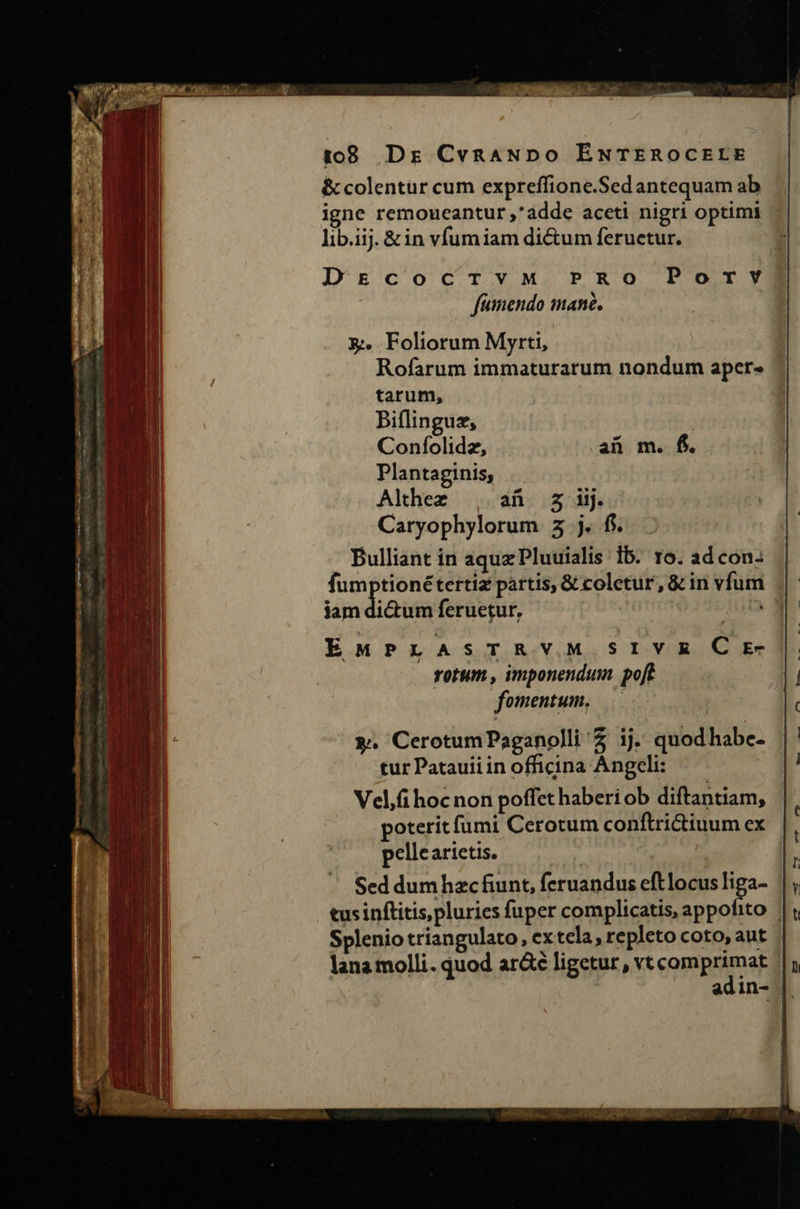 108 DE CVRANDO ENTEROCELE
& colentur cum expreſſione. Sed antequam ab
igne remoueantur, adde aceti nigri optimi
lib.iij. & in vſum iam dictum ſeruetur.
DECOCTVM PRO POTV
ſumendo manè.
℞. Foliorum Myrti,
Roſarum immaturarum nondum aper-
tarum,
Biſlinguæ,
Conſolidæ, añ m. ß.
Plantaginis,
Altheæ añ ʒ iij.
Caryophylorum ʒ j. ß.
Bulliant in aquæ Pluuialis lb. 10. ad con-
ſumptioné tertiæ partis, & coletur, & in vſum
iam dictum ſeruetur,
EMPLASTRVM SIVE CE-
rotum, imponendum poſt
fomentum.
℞. Cerotum Paganolli ℥ ij. quod habe-
tur Patauii in officina Angeli:
Vel, ſi hoc non poſſet haberi ob diſtantiam,
poterit ſumi Cerotum conſtrictiuum ex
pelle arietis.
Sed dum hæc fiunt, ſeruandus eſt locus liga-
tus inſtitis, pluries ſuper complicatis, appoſito
Splenio triangulato, ex tela, repleto coto, aut
lana molli. quod arctè ligetur, vt comprimat
ad in-